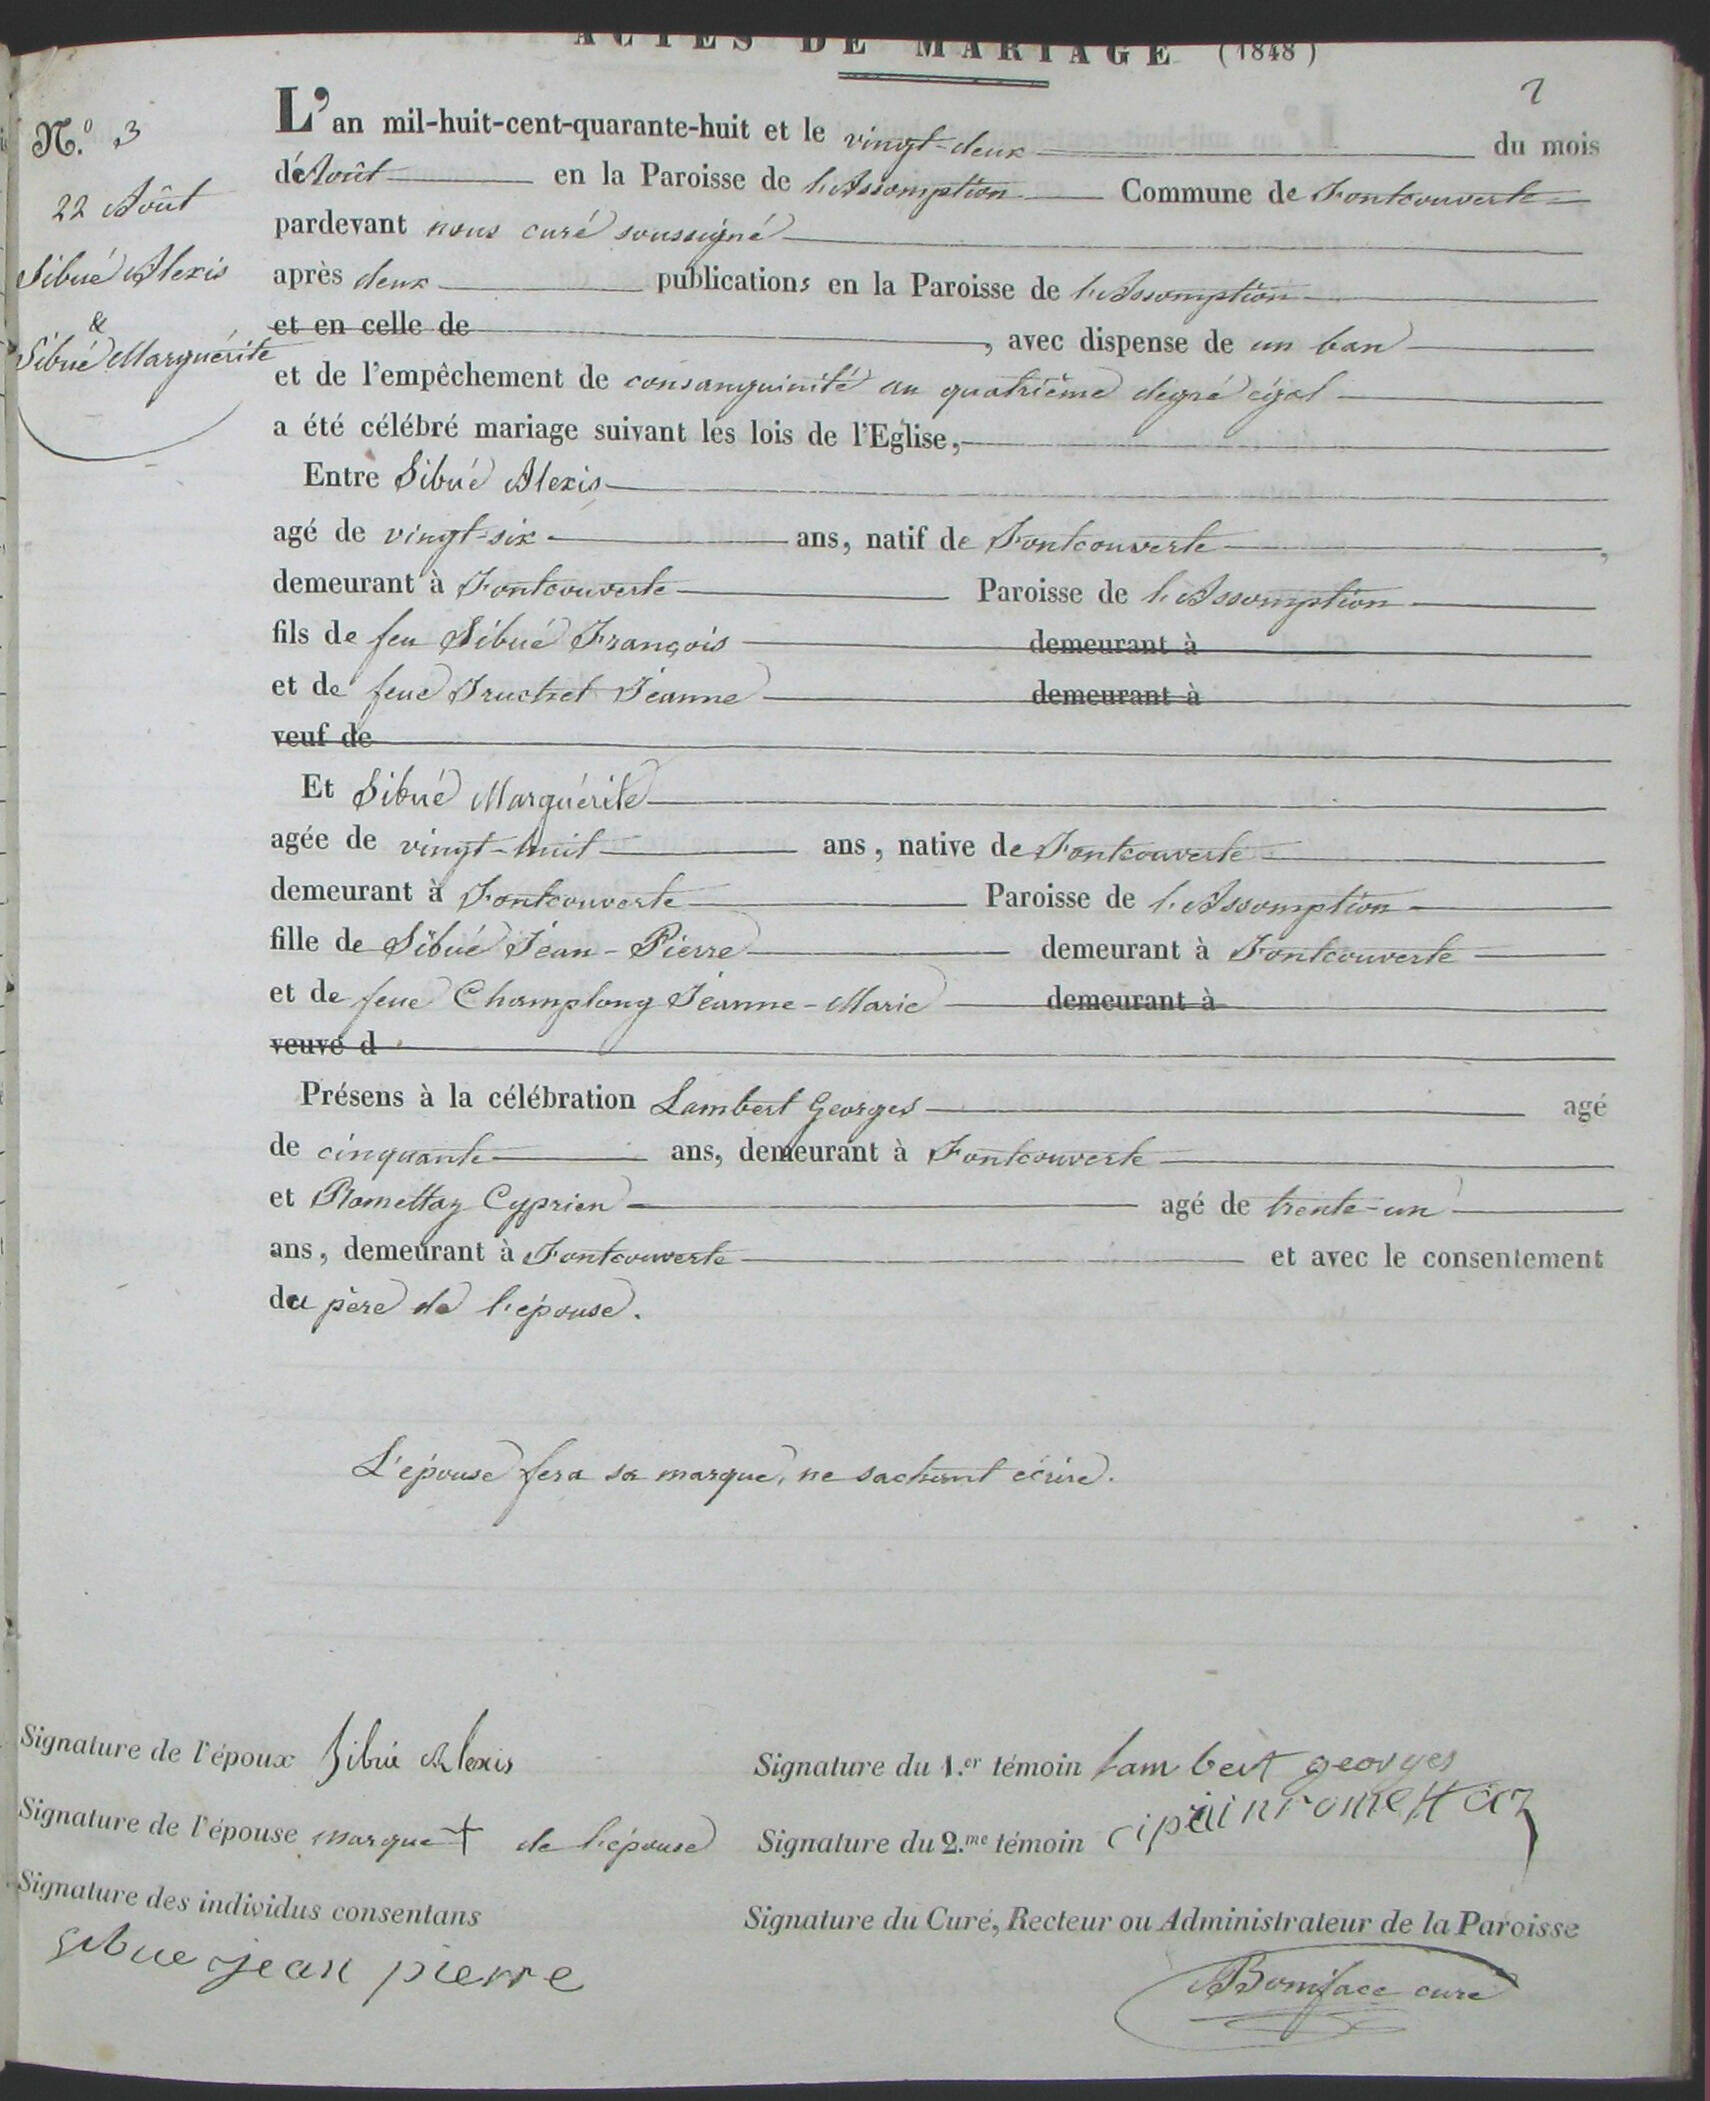 ACTES DE MARIAGE (1848)
2
N.o 3
22 Août
Sibué Alexis
&
Sibué Marguérite
L'an mil-huit-cent-quarante-huit et le vingt-deux du mois
d'Août en la Paroisse de l'Assomption Commune de Fontcouverte
pardevant nous curé soussigné
après deux publications en la Paroisse de l'Assomption
et en celle de , avec dispense de un ban
et de l'empêchement de consanguinité au quatrième dégré égal
a été célébré mariage suivant les lois de l'Eglise,
Entre Sibué Alexis
agé de vingt-six ans, natif de Fontcouverte ,
demeurant à Fontcouverte Paroisse de l'Assomption
fils de feu Sibué François demeurant à
et de feue Truchet Jéanne demeurant à
veuf de
Et Sibué Marguérite
agée de vingt-huit ans, native de Fontcouverte
demeurant à Fontcouverte Paroisse de l'Assomption
fille de Sibué Jéan-Pierre demeurant à Fontcouverte
et de feue Champlong Jéanne-Marie demeurant à
veuve d
Présens à la célébration Lambert Georges agé
de cinquante ans, demeurant à Fontcouverte
et Romettaz Cyprien agé de trente-un
ans, demeurant à Fontcouverte et avec le consentement
du père de l'épouse.
L'épouse fera sa marque, ne sachant écrire.
Signature de l'époux Sibué Alexis
Signature du 1.er témoin lambert georges
Signature de l'épouse marque + de l'épouse
Signature du 2.me témoin cipriin romettaz
Signature des individus consentans
Sibue jean pierre
Signature du Curé, Recteur ou Administrateur de la Paroisse
Boniface curé